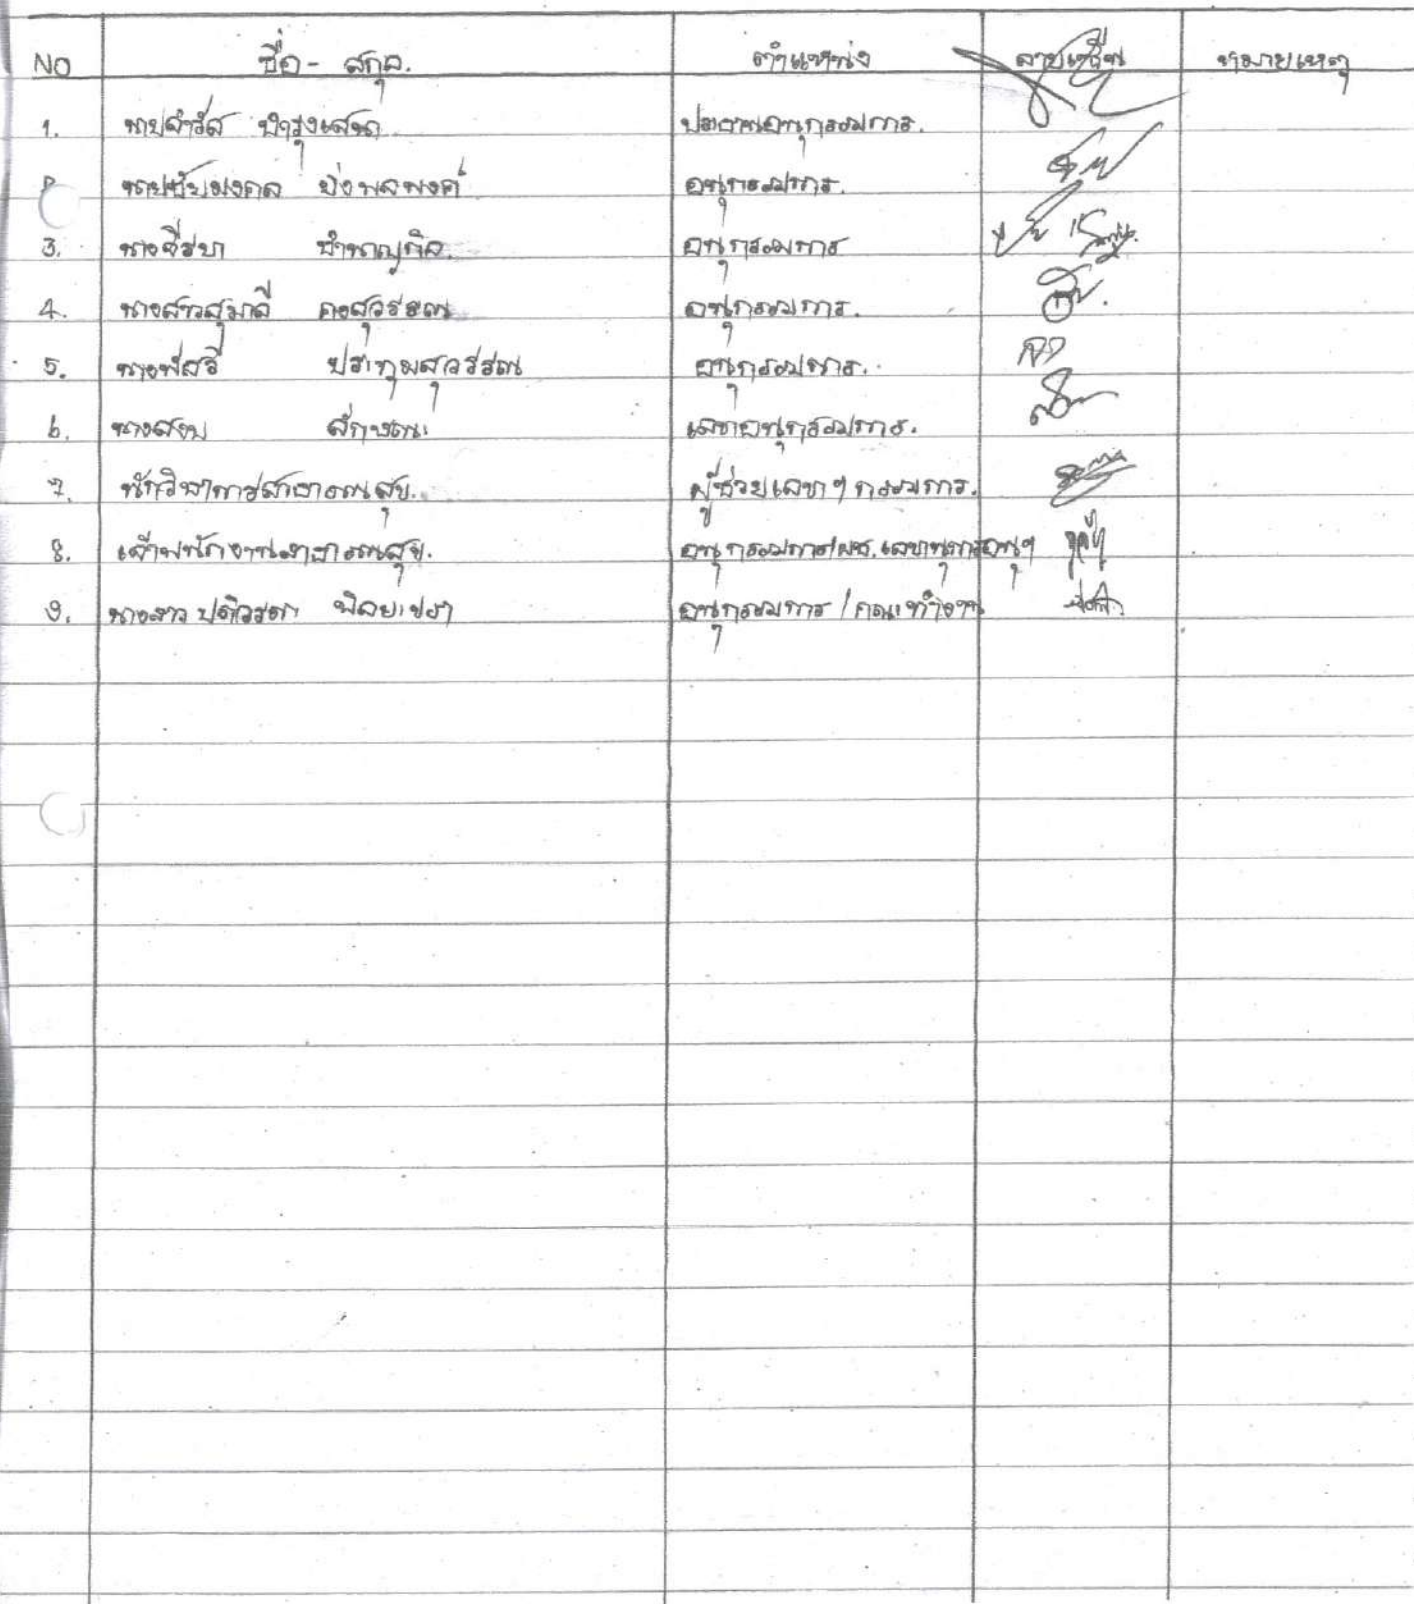 NO ชื่อ - สกุล. ตำแหน่ง ลายเซ็น หมายเหตุ
1. นายสำรัส บำรุงเสนา ประธานอนุกรรมการ.
2 นายชัยมงคล ยิ่งพลพงศ์ อนุกรรมการ.
3. นางจีรยา ชำนาญกิจ. อนุกรรมการ
4. นางสาวสุมาลี คงสุวรรณ อนุกรรมการ.
5. นางพัสรี ประทุมสุวรรณ อนุกรรมการ.
6. นางสงบ ลักษณะ เลขาอนุกรรมการ.
7. นักวิชาการสาธารณสุข. ผู้ช่วยเลขาฯ กรรมการ.
8. เจ้าพนักงานสาธารณสุข. อนุกรรมการ/ผช.เลขานุการอนุฯ
9. นางสาว ปติวรดา อนุกรรมการ / คณะทำงาน